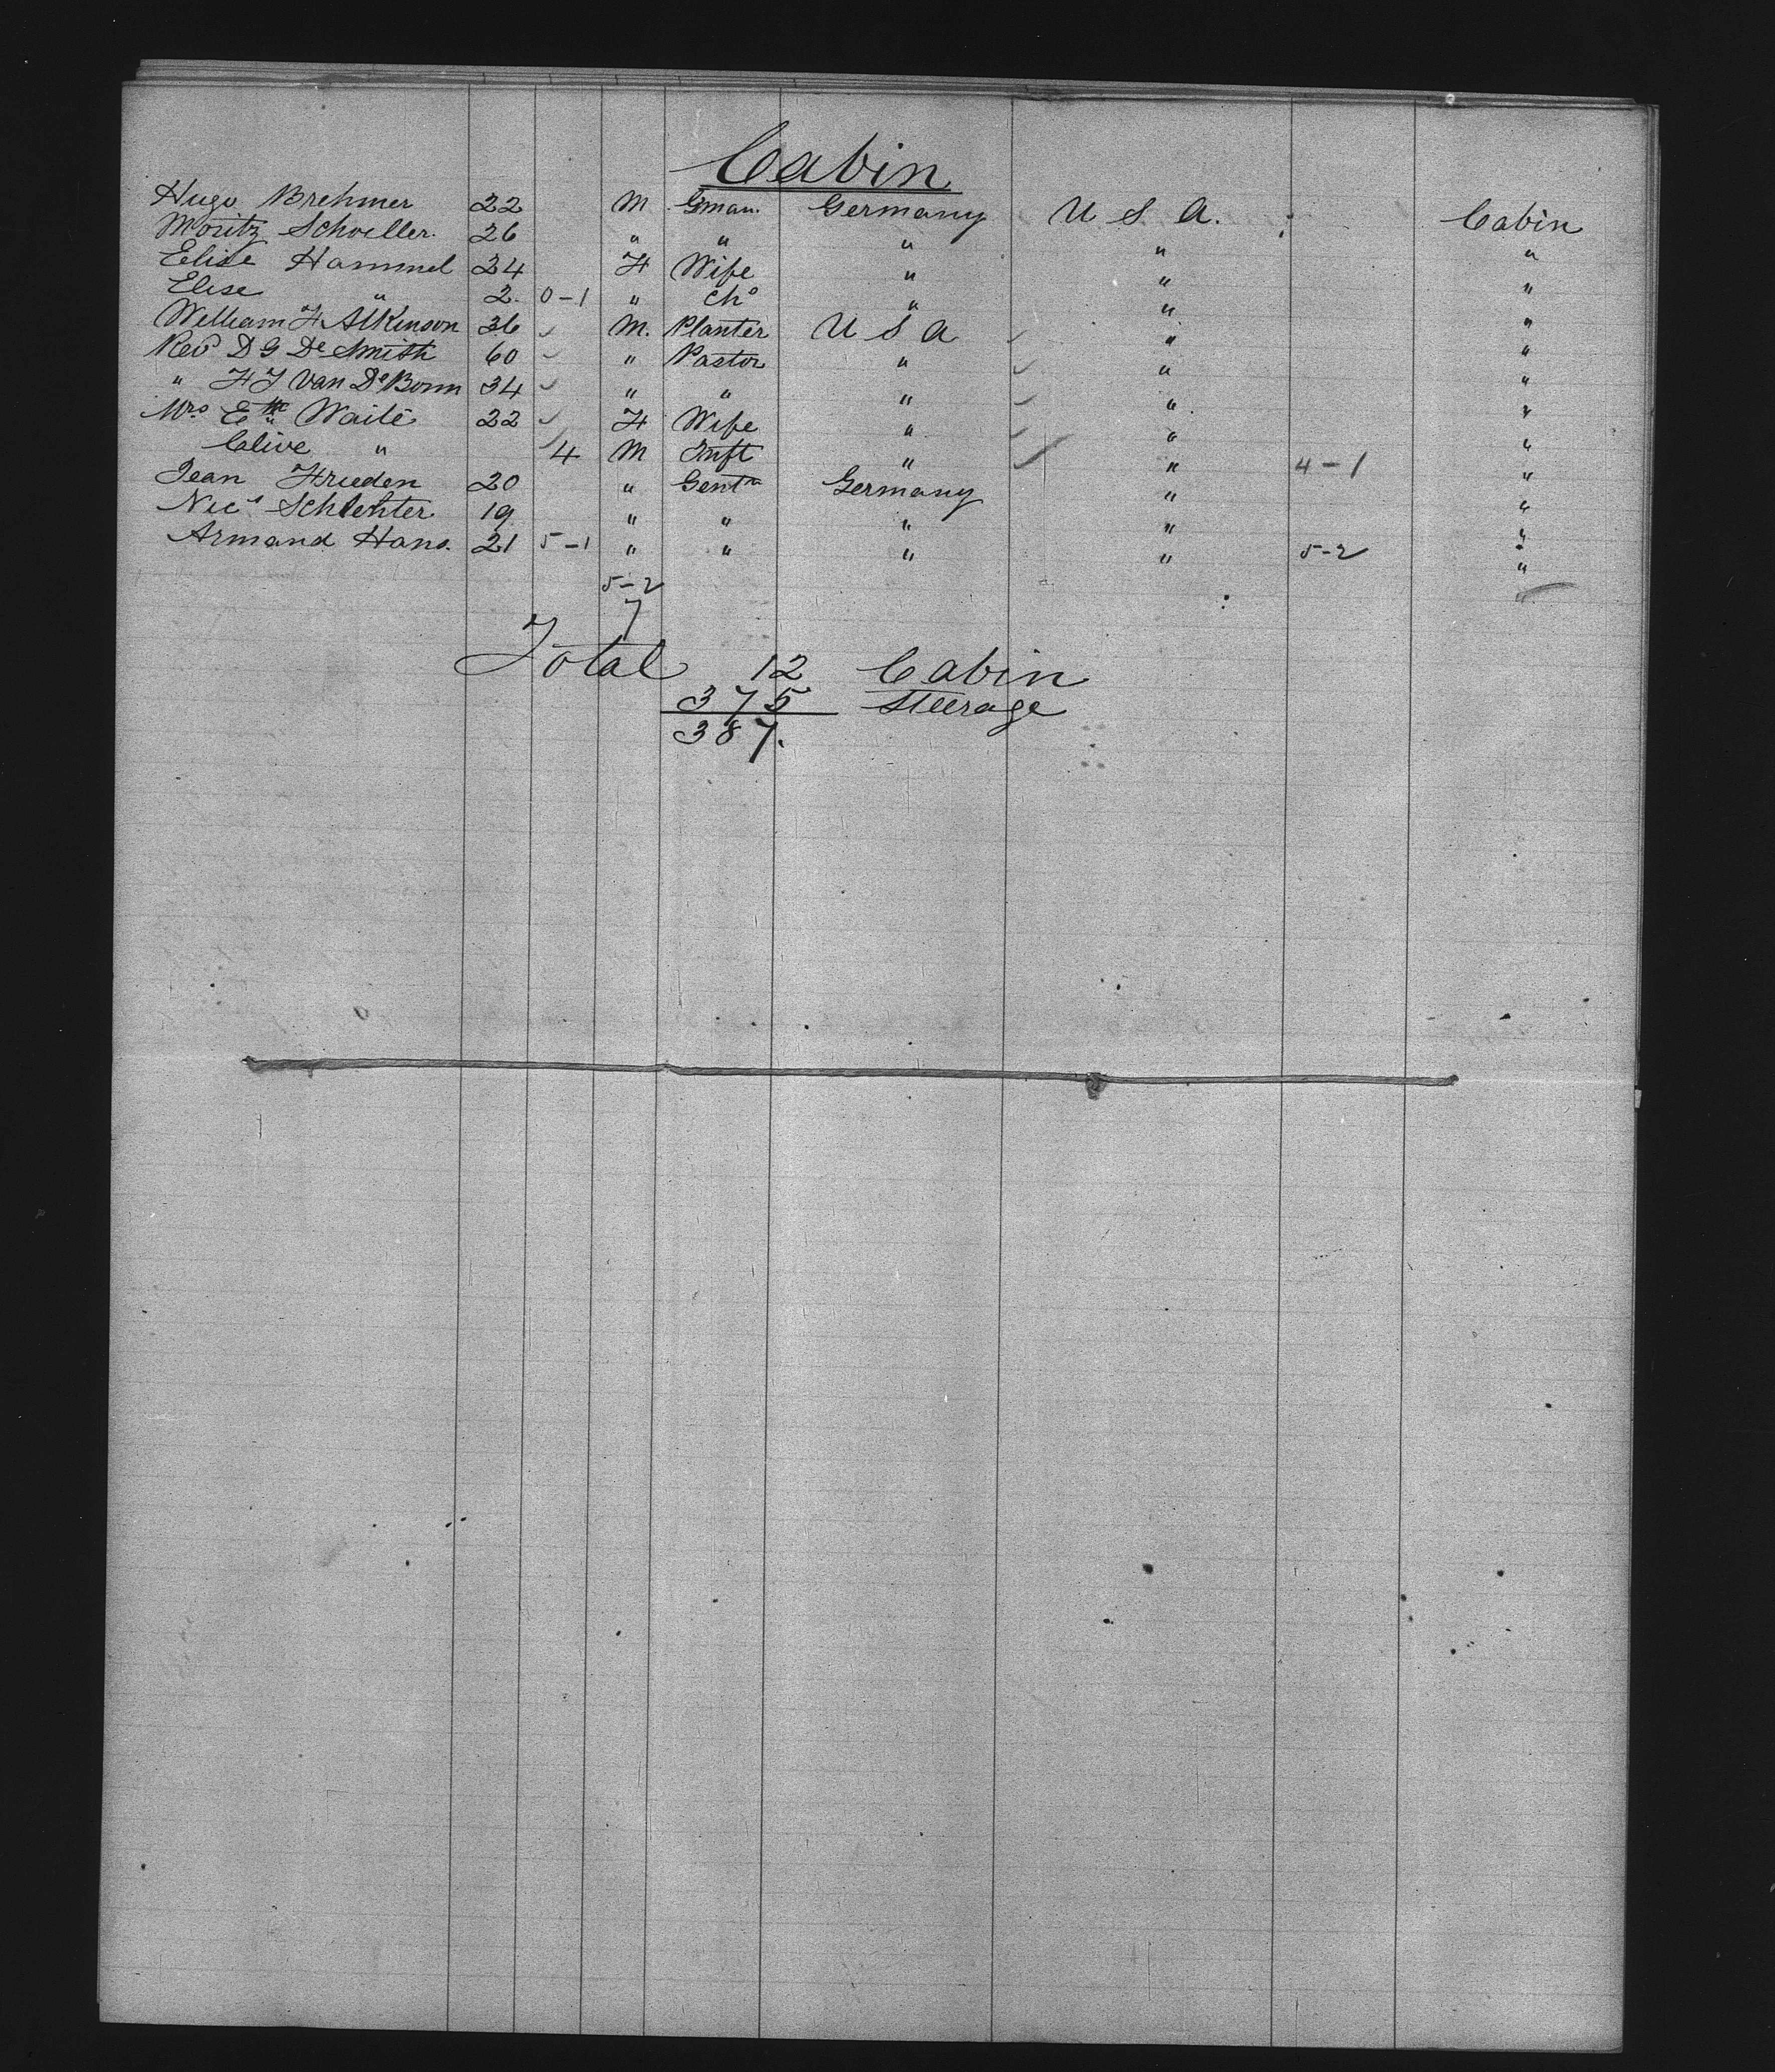 Cabin
Hugo Brehmer 22 M Gman. Germany U S A. Cabin
Moritz Schoeller. 26 " " " " "
Elise Hammel 24 F Wife " " "
Elise " 2. 0-1 " Chd " " "
William F Atkinson 36 M. Planter U S A " "
Revd D G De Smith 60 " Pastor " " "
" F J Van De Bom 34 " " " " "
Mrs E Waite 22 F Wife " " "
Clive " 4 M Inft " " 4-1 "
Jean Frieden 20 " Gentn Germany " "
Nics Schlehter 19 " " " " "
Armand Hans. 21 5-1 " " " " 5-2 "
5-2 "
7
Total 12 Cabin
375 Steerage
387.